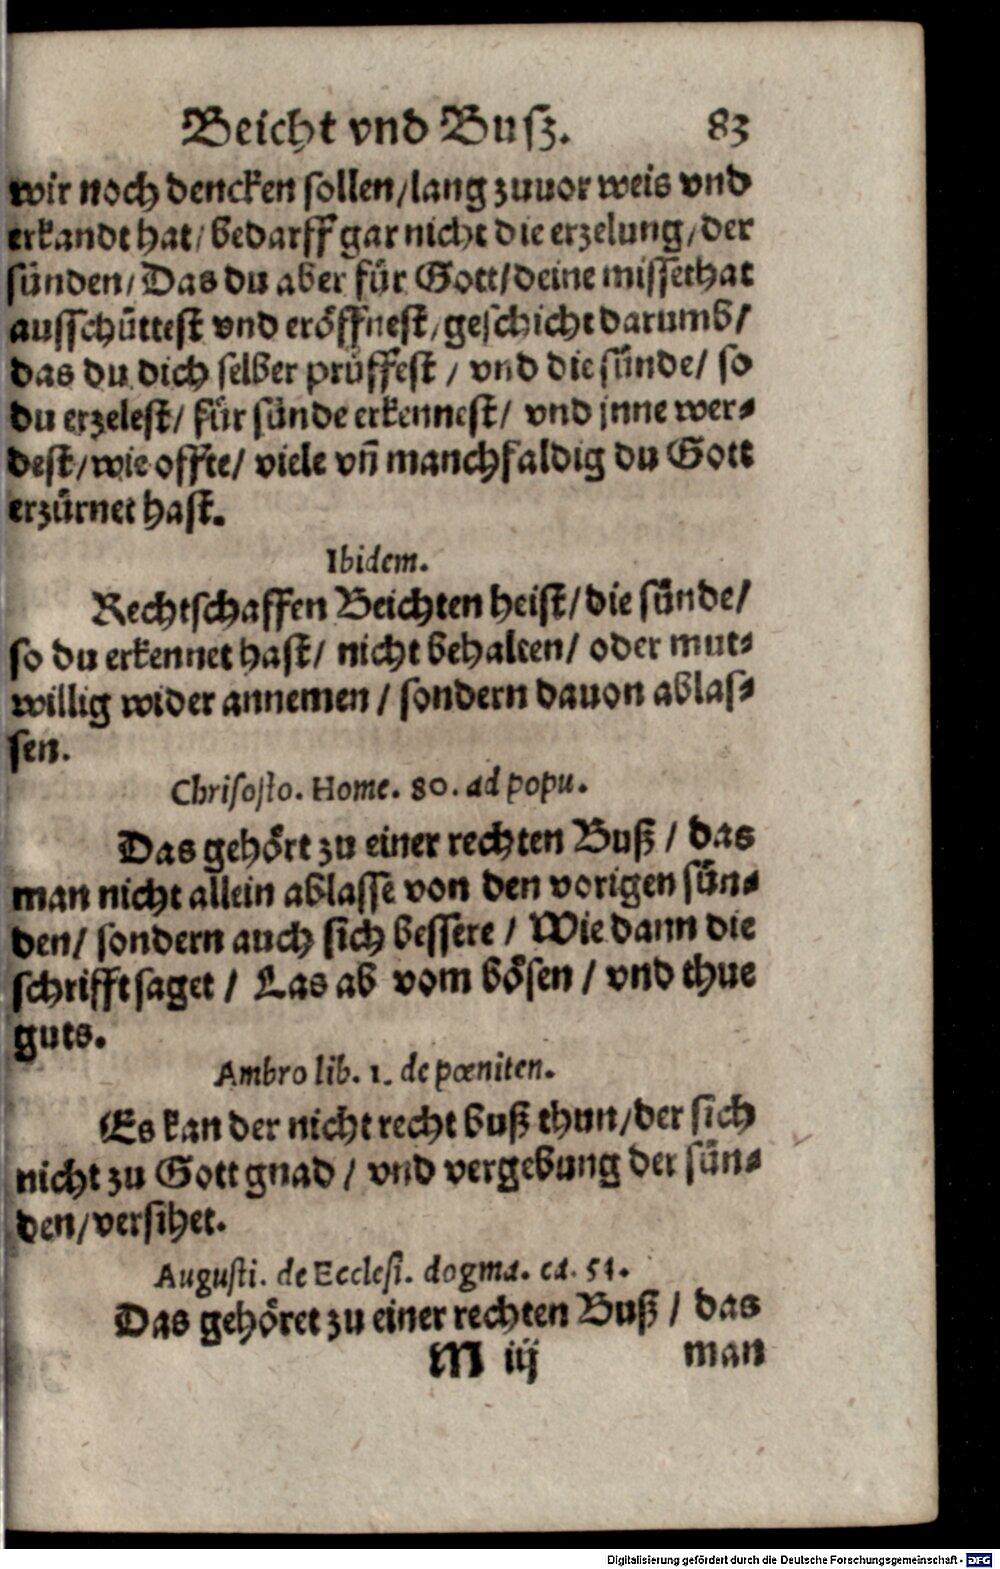 Beicht vnd Busz. 83
wir noch dencken sollen/lang zuuor weis vnd
erkandt hat/bedarff gar nicht die erzelung/der
sünden/Das du aber für Gott/deine missethat
ausschüttest vnd eröffnest/geschicht darumb/
das du dich selber prüffest / vnd die sünde/ so
du erzelest/ für sünde erkennest/ vnd jnne wer-
dest/wie offte/ viele vñ manchfaldig du Gott
erzürnet hast.
Ibidem.
Rechtschaffen Beichten heist/die sünde/
so du erkennet hast/ nicht behalten/ oder mut-
willig wider annemen / sondern dauon ablas-
sen.
Chrisosto. Home. 80. ad popu.
Das gehört zu einer rechten Buß / das
man nicht allein ablasse von den vorigen sün-
den/ sondern auch sich bessere / Wie dann die
schrifft saget / Las ab vom bösen / vnd thue
guts.
Ambro lib. 1. de pœniten.
Es kan der nicht recht buß thun/der sich
nicht zu Gott gnad / vnd vergebung der sün-
den/versihet.
Augusti. de Ecclesi. dogma. ca. 51.
Das gehöret zu einer rechten Buß / das
M iij man
Digitalisierung gefördert durch die Deutsche Forschungsgemeinschaft - DFG